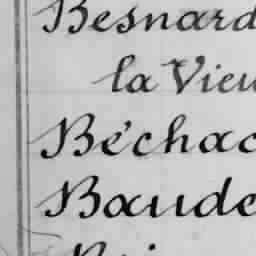 Besnard
la Vieu
Béchac
Baude